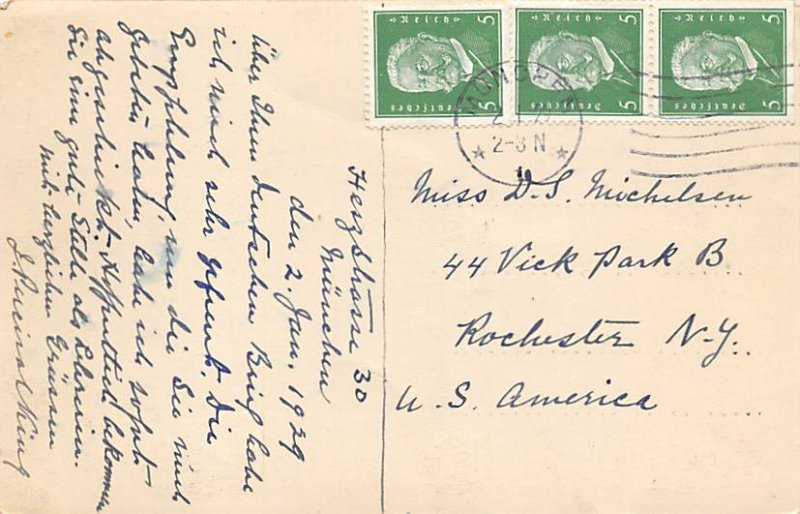 Herzstrasse 30
München
den 2. Jan. 1929
Über Ihren deutschen Brief habe
ich mich sehr gefreut. Die
Empfehlung, um die Sie mich
gebeten haben, habe ich sofort
abgeschickt. Hoffentlich bekommen
Sie eine gute Stelle als Lehrerin.
mit herzlichen Grüssen
Reich 5
Deutsches 5
Reich 5
Deutsches 5
Reich 5
Deutsches 5
MÜNCHEN
2-3 N
Miss D. S. Michelsen
44 Vick Park B
Rochester N.Y.
U.S. America